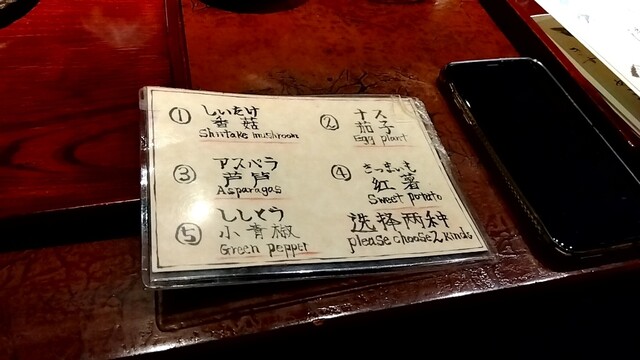 ① しいたけ
香菇
Shiitake mushroom
② ナス
茄子
Egg plant
③ アスパラ
芦芦
Asparagas
④ さつまいも
红薯
Sweet potato
⑤ ししとう
小青椒
Green pepper
选择两种
please choose 2 kinds